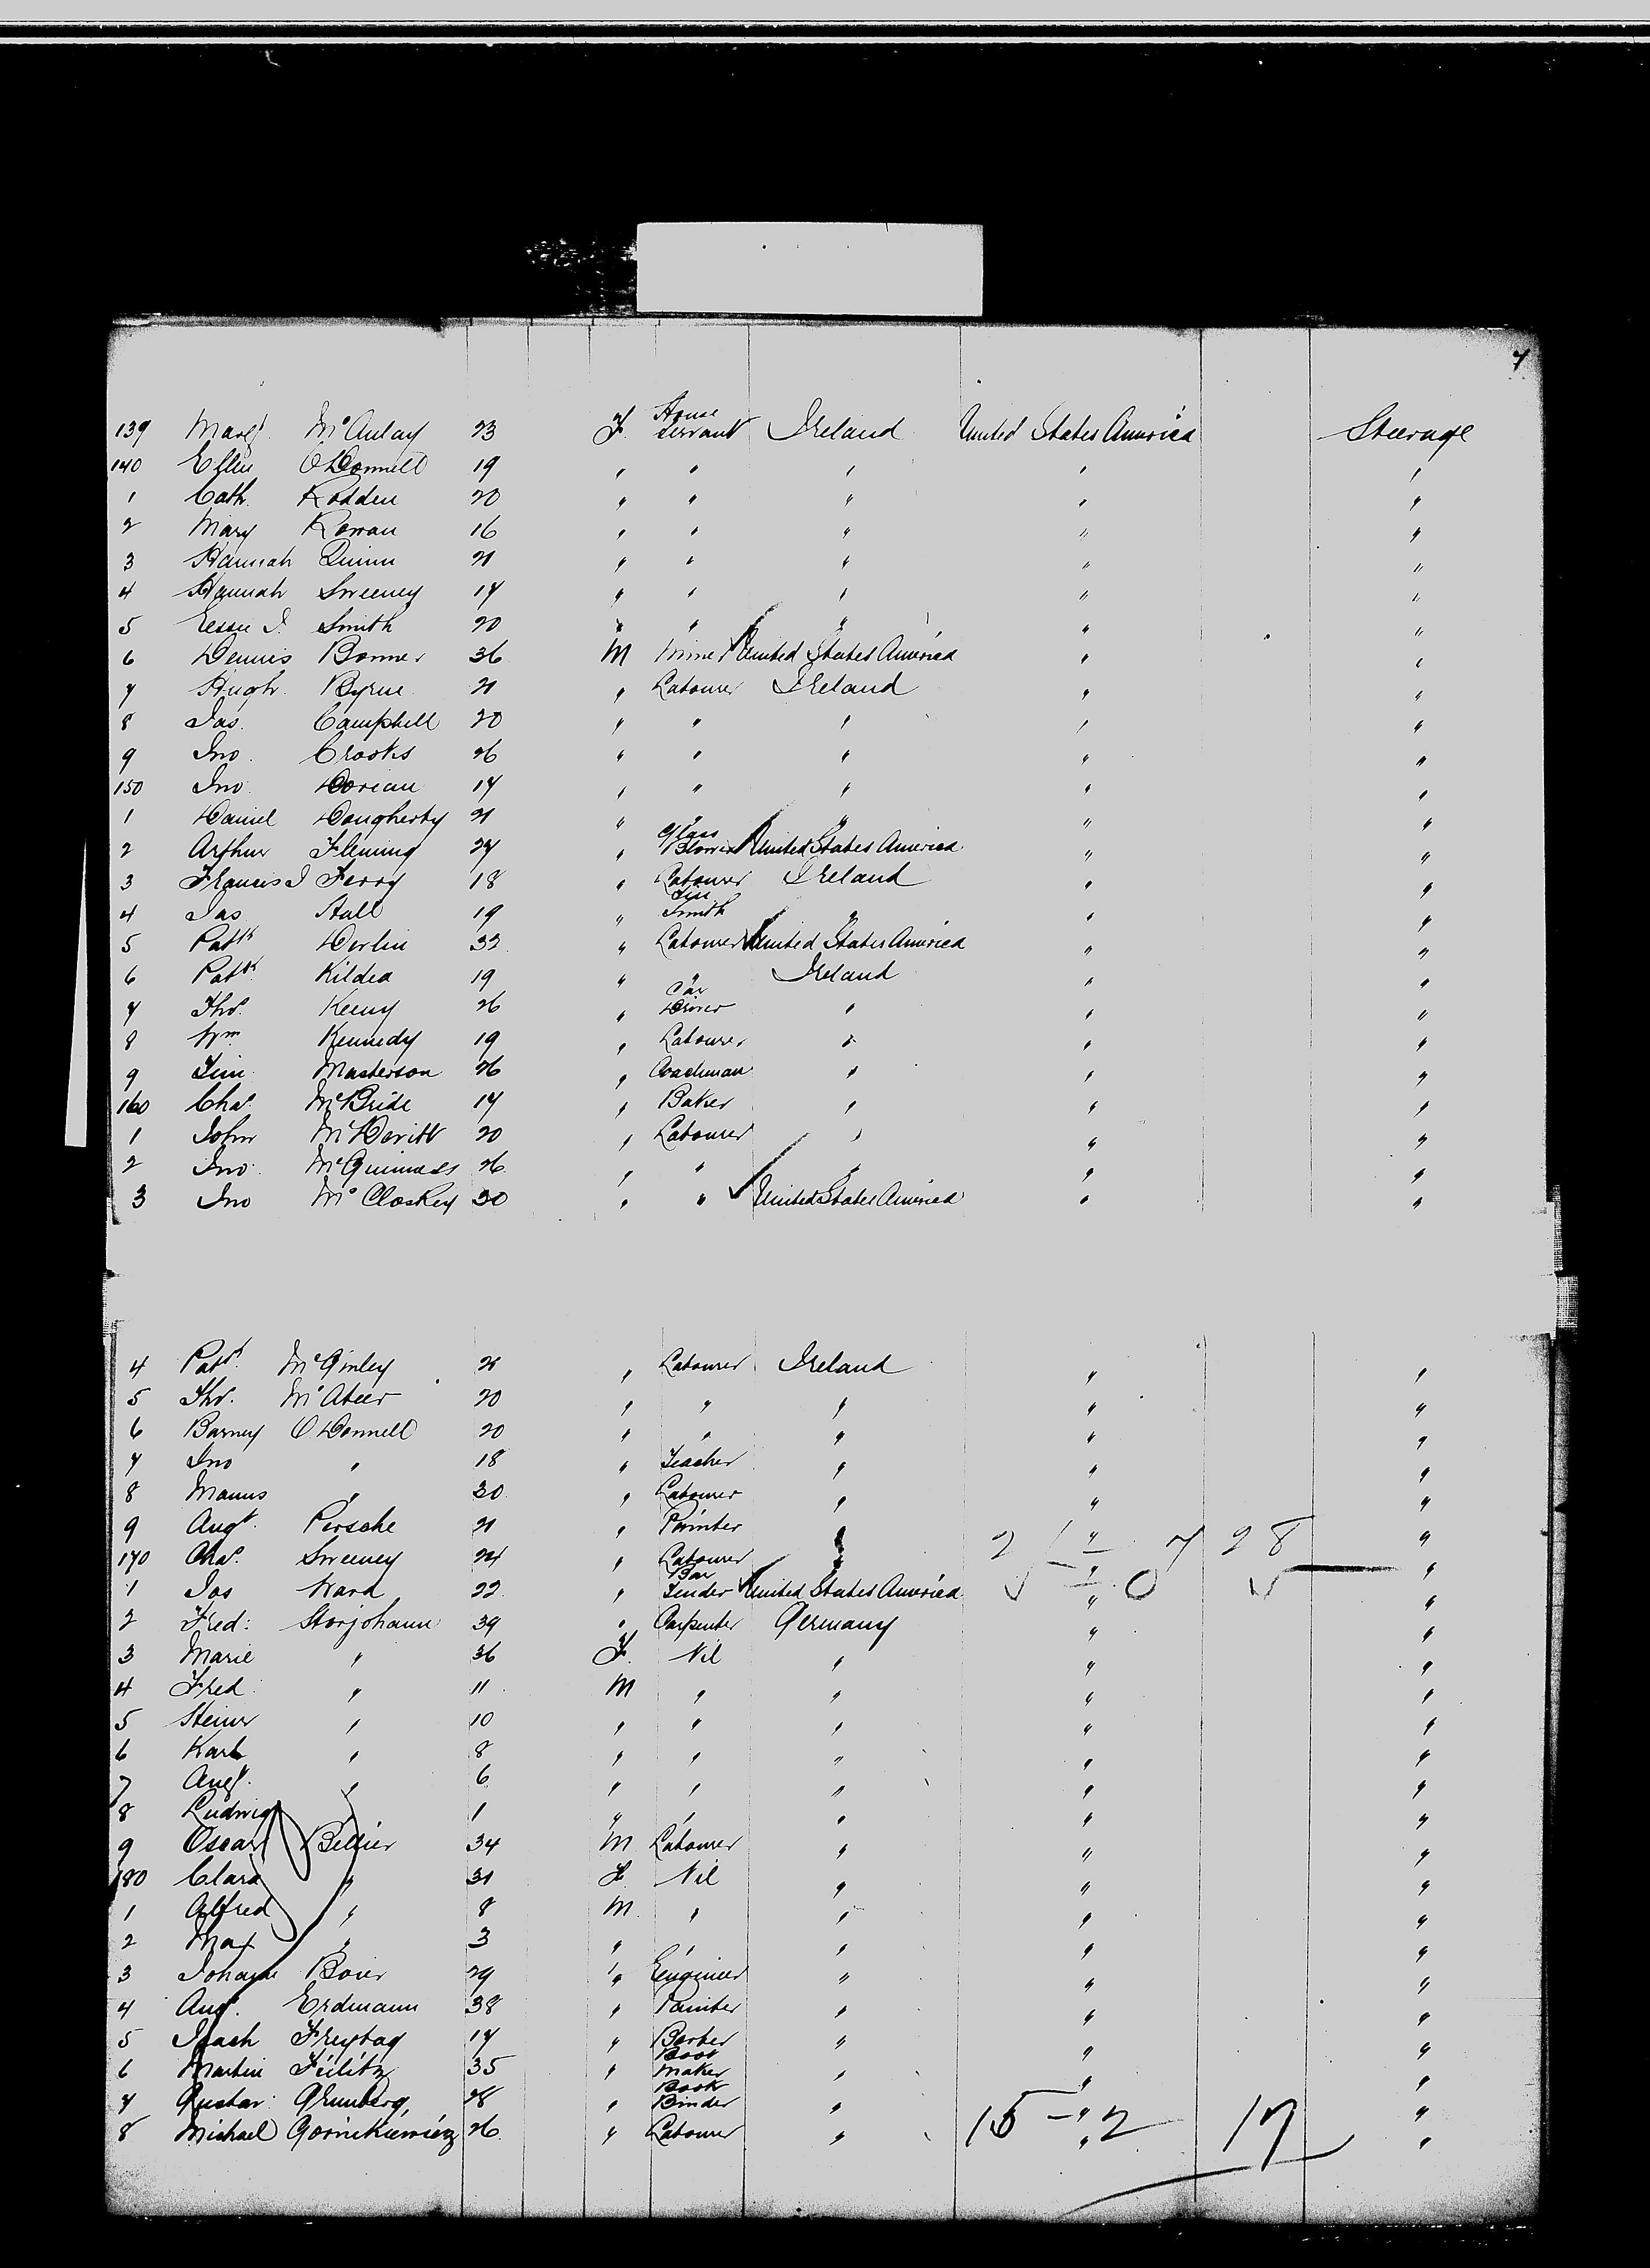 7
139 Margt. McAulay 23 F. House Servant Ireland United States America Steerage
140 Ellen O'Donnell 19 " " " " "
1 Cath. Rodden 20 " " " " "
2 Mary Rowan 16 " " " " "
3 Hannah Quinn 21 " " " " "
4 Hannah Sweeney 17 " " " " "
5 Lessie J. Smith 20 " " " " "
6 Dennis Bonner 36 M Miner United States America " "
7 Hugh Byrne 21 " Labourer Ireland " "
8 Jas. Campbell 20 " " " " "
9 Jno. Crooks 26 " " " " "
150 Jno Dorian 17 " " " " "
1 Daniel Dougherty 21 " " " " "
2 Arthur Fleming 27 " Glass Blower United States America " "
3 Francis J Ferry 18 " Labourer Ireland " "
4 Jas Hall 19 " Tin Smith " " "
5 Patk Devlin 32 " Labourer United States America " "
6 Patk Kildea 19 " " Ireland " "
7 Tho. Kenny 26 " Car Driver " " "
8 Wm Kennedy 19 " Labourer " " "
9 Tim Masterson 26 " Coachman " " "
160 Chas. McBride 17 " Baker " " "
1 John McDevitt 20 " Labourer " " "
2 Jno. McGuinness 26 " " " " "
3 Jno McCloskey 30 " " United States America " "
4 Patk. McGinley 21 " Labourer Ireland " "
5 Tho. McAteer 20 " " " " "
6 Barney O'Donnell 20 " " " " "
7 Jno " 18 " Teacher " " "
8 Manus " 30 " Labourer " " "
9 Augt. Persche 21 " Painter " " "
170 Chas. Sweeney 24 " Labourer " " "
1 Jas Ward 22 " Bar Tender United States America " "
2 Fred: Storjohann 39 " Carpenter Germany " "
3 Marie " 36 F. Nil " " "
4 Fred. " 11 M " " " "
5 " 10 " " " " "
6 Karl " 8 " " " " "
7 Augt. " 6 " " " " "
8 Ludwig " 1 " " " " "
9 Oscar Bellier 34 M Labourer " " "
180 Clara " 31 F Nil " " "
1 Alfred " 8 M " " " "
2 Max " 3 " " " " "
3 Boier 29 " Engineer " " "
4 Augt. Erdmann 38 " Painter " " "
5 Freytag 17 " Barber " " "
6 Martin 35 " Boot Maker " " "
7 Gustav Grunberg 28 " Book Binder " " "
8 Michael Gornikiewicz 26 " Labourer " " "
15 - 2 17